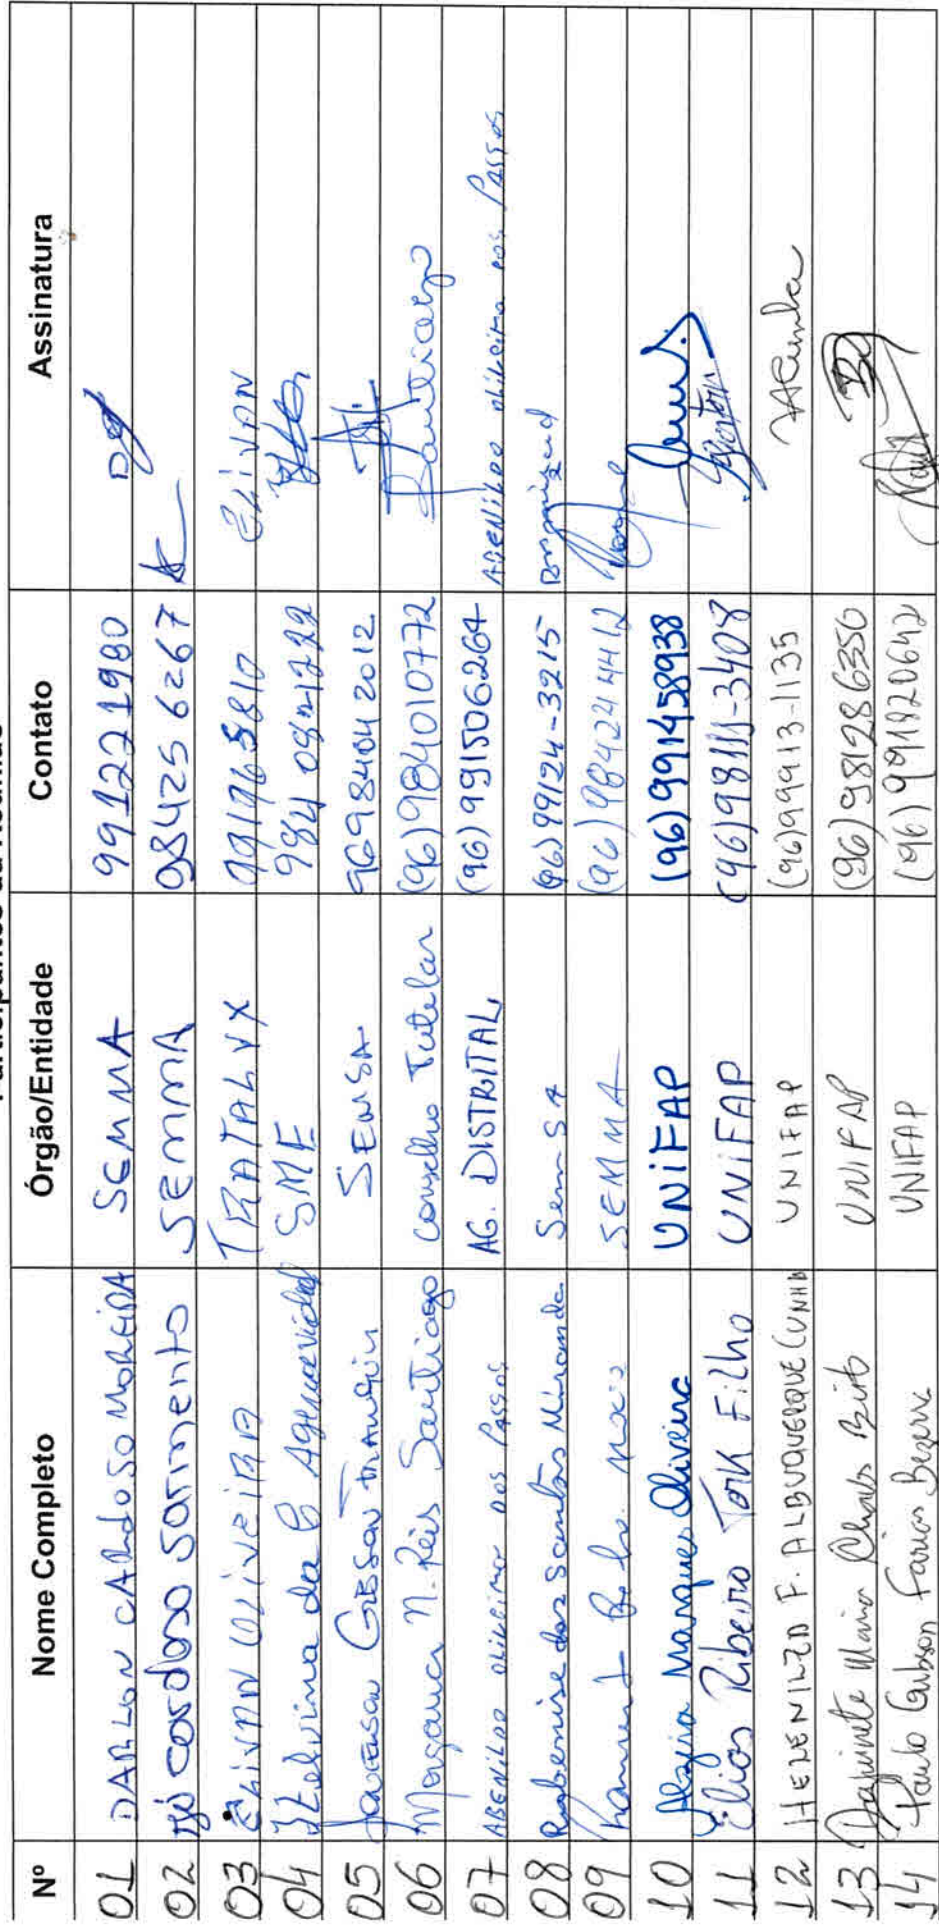 Participantes da Reunião
Nº Nome Completo Órgão/Entidade Contato Assinatura
01 DARLON CARDOSO MOREIRA SEMMA 991221980
02 cardoso sarmento SEMMA 98425 6267
03 ELIVAN OLIVEIRA TRATALYX ELIVAN
04 da C SME
05 SEMSA 96984042012
06 Morgana N. Reis Santiago Conselho Tutelar (96) 984010772 Santiago
07 ABENILDO OLIVEIRA DOS PASSOS AG. DISTRITAL (96) 991506264 ABENILDO OLIVEIRA DOS PASSOS
08 dos Santos Miranda SemSA (96) 99124-3215
09 SEMMA (96) 984244412
10 Alzira Marques Oliveira UNIFAP (96) 991458938
11 Elias Ribeiro Tork Filho UNIFAP (96) 98111-3408
12 HELENILZA F. ALBUQUERQUE CUNHA UNIFAP (96) 99913-1135 HACunha
13 Maria Chaves Brito UNIFAP (96) 981286350
14 Paulo Gibson Farias Bezerra UNIFAP (96) 991920642